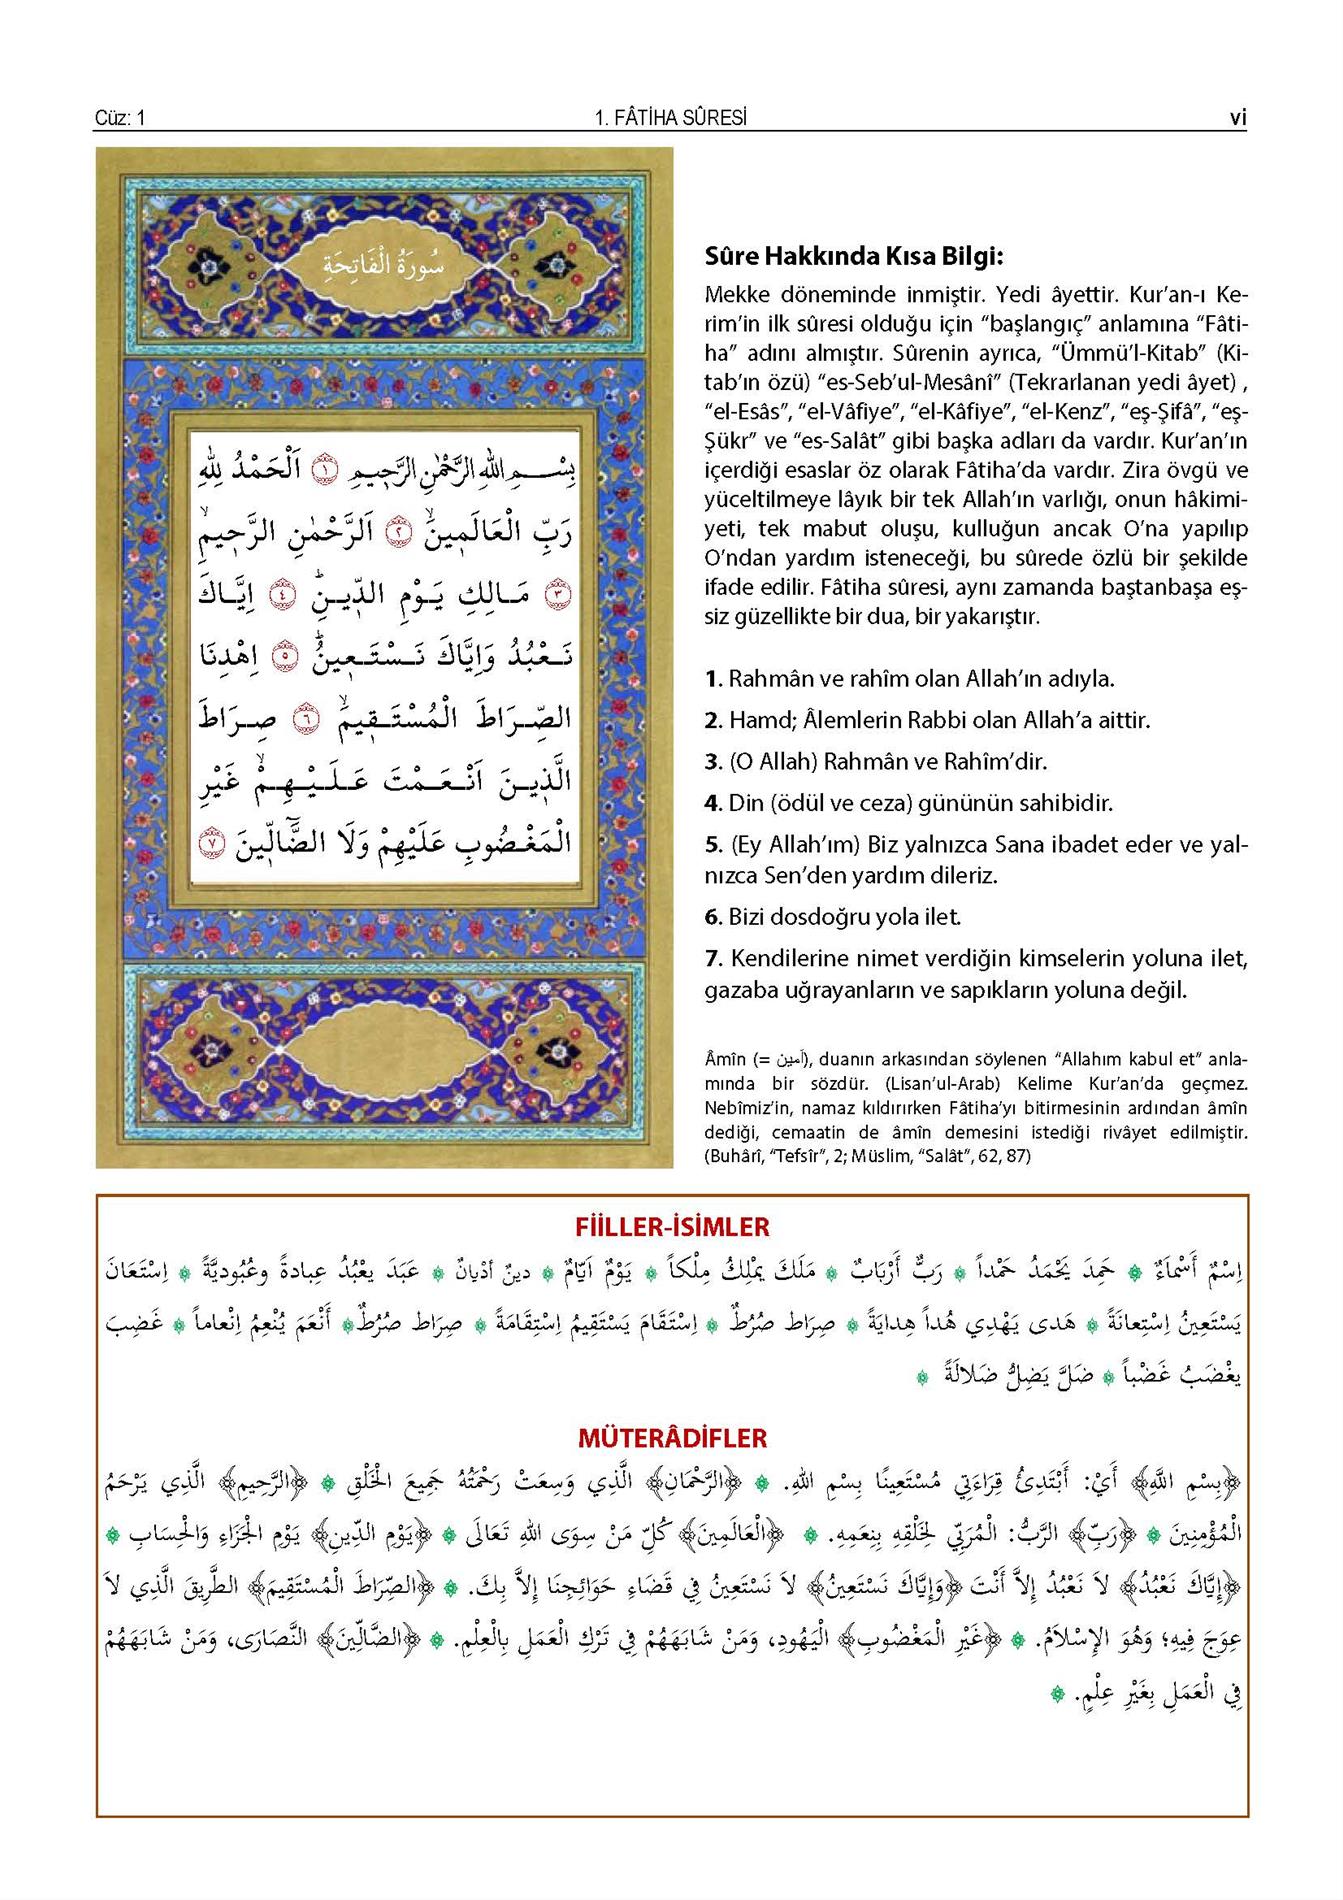 Cüz: 1
1. FÂTİHA SÛRESİ
vi
سُورَةُ الْفَاتِحَةِ
بِسْـــمِ اللّٰهِ الرَّحْمٰنِ الرَّح۪يمِ ﴿١﴾ اَلْحَمْدُ لِلّٰهِ
رَبِّ الْعَالَم۪ينَۙ ﴿٢﴾ اَلرَّحْمٰنِ الرَّح۪يمِۙ
﴿٣﴾ مَـالِكِ يَـوْمِ الدّ۪يـنِۜ ﴿٤﴾ اِيَّـاكَ
نَـعْبُدُ وَاِيَّاكَ نَـسْتَـع۪ينُۜ ﴿٥﴾ اِهْدِنَا
الصِّـرَاطَ الْمُسْتَـق۪يمَۙ ﴿٦﴾ صِـرَاطَ
الَّذ۪يـنَ اَنْـعَـمْتَ عَـلَـيْـهِـمْۙ غَيْرِ
الْمَغْـضُوبِ عَلَيْهِمْ وَلَا الضَّٓالّ۪ينَ ﴿٧﴾
Sûre Hakkında Kısa Bilgi:
Mekke döneminde inmiştir. Yedi âyettir. Kur’an-ı Ke-
rim’in ilk sûresi olduğu için “başlangıç” anlamına “Fâti-
ha” adını almıştır. Sûrenin ayrıca, “Ümmü’l-Kitab” (Ki-
tab’ın özü) “es-Seb’ul-Mesânî” (Tekrarlanan yedi âyet) ,
“el-Esâs”, “el-Vâfiye”, “el-Kâfiye”, “el-Kenz”, “eş-Şifâ”, “eş-
Şükr” ve “es-Salât” gibi başka adları da vardır. Kur’an’ın
içerdiği esaslar öz olarak Fâtiha’da vardır. Zira övgü ve
yüceltilmeye lâyık bir tek Allah’ın varlığı, onun hâkimi-
yeti, tek mabut oluşu, kulluğun ancak O’na yapılıp
O’ndan yardım isteneceği, bu sûrede özlü bir şekilde
ifade edilir. Fâtiha sûresi, aynı zamanda baştanbaşa eş-
siz güzellikte bir dua, bir yakarıştır.
1. Rahmân ve rahîm olan Allah’ın adıyla.
2. Hamd; Âlemlerin Rabbi olan Allah’a aittir.
3. (O Allah) Rahmân ve Rahîm’dir.
4. Din (ödül ve ceza) gününün sahibidir.
5. (Ey Allah’ım) Biz yalnızca Sana ibadet eder ve yal-
nızca Sen’den yardım dileriz.
6. Bizi dosdoğru yola ilet.
7. Kendilerine nimet verdiğin kimselerin yoluna ilet,
gazaba uğrayanların ve sapıkların yoluna değil.
Âmîn (= آمين), duanın arkasından söylenen “Allahım kabul et” anla-
mında bir sözdür. (Lisan’ul-Arab) Kelime Kur’an’da geçmez.
Nebîmiz’in, namaz kıldırırken Fâtiha’yı bitirmesinin ardından âmîn
dediği, cemaatin de âmîn demesini istediği rivâyet edilmiştir.
(Buhârî, “Tefsîr”, 2; Müslim, “Salât”, 62, 87)
FİİLLER-İSİMLER
اِسْمٌ أَسْمَاءٌ ۞ حَمِدَ يَحْمَدُ حَمْداً ۞ رَبٌّ أَرْبَابٌ ۞ مَلَكَ يَمْلِكُ مِلْكاً ۞ يَوْمٌ اَيَّامٌ ۞ دينٌ أدْيانٌ ۞ عَبَدَ يعْبُدُ عِبادةً وعُبُوديَّةً ۞ اِسْتَعَانَ
يَسْتَعِينُ اِسْتِعانَةً ۞ هَدى يَهْدِي هُداً هِدايَةً ۞ صِرَاط صُرُطٌ ۞ اِسْتَقَامَ يَسْتَقِيمُ اِسْتِقَامَةً ۞ صِرَاط صُرُطٌ ۞ أَنْعَمَ يُنْعِمُ اِنْعاماً ۞ غَضِبَ
يغْضَبُ غَضْباً ۞ ضَلَّ يَضِلُّ ضَلالَةً ۞
MÜTERÂDİFLER
﴿بِسْمِ اللَّهِ﴾ أَيْ: أَبْتَدِئُ قِرَاءَتِي مُسْتَعِينًا بِسْمِ اللهِ. ۞ ﴿الرَّحْمَانِ﴾ الَّذِي وَسِعَتْ رَحْمَتُهُ جَمِيعَ الْخَلْقِ ۞ ﴿الرَّحِيمِ﴾ الَّذِي يَرْحَمُ
الْمُؤْمِنِينَ ۞ ﴿رَبِّ﴾ الرَّبُّ: الْمُرَبِّي لِخَلْقِهِ بِنِعَمِهِ. ۞ ﴿الْعَالَمِينَ﴾ كُلِّ مَنْ سِوَى اللهِ تَعَالَى ۞ ﴿يَوْمِ الدِّينِ﴾ يَوْمِ الْجَزَاءِ وَالْحِسَابِ ۞
﴿إِيَّاكَ نَعْبُدُ﴾ لاَ نَعْبُدُ إِلاَّ أَنْتَ ﴿وَإِيَّاكَ نَسْتَعِينُ﴾ لاَ نَسْتَعِينُ فِي قَضَاءِ حَوَائِجِنَا إِلاَّ بِكَ. ۞ ﴿الصِّرَاطَ الْمُسْتَقِيمَ﴾ الطَّرِيقَ الَّذِي لاَ
عِوَجَ فِيهِ؛ وَهُوَ الإِسْلاَمُ. ۞ ﴿غَيْرِ الْمَغْضُوبِ﴾ الْيَهُودِ، وَمَنْ شَابَهَهُمْ فِي تَرْكِ الْعَمَلِ بِالْعِلْمِ. ۞ ﴿الضَّالِّينَ﴾ النَّصَارَى، وَمَنْ شَابَهَهُمْ
فِي الْعَمَلِ بِغَيْرِ عِلْمٍ. ۞